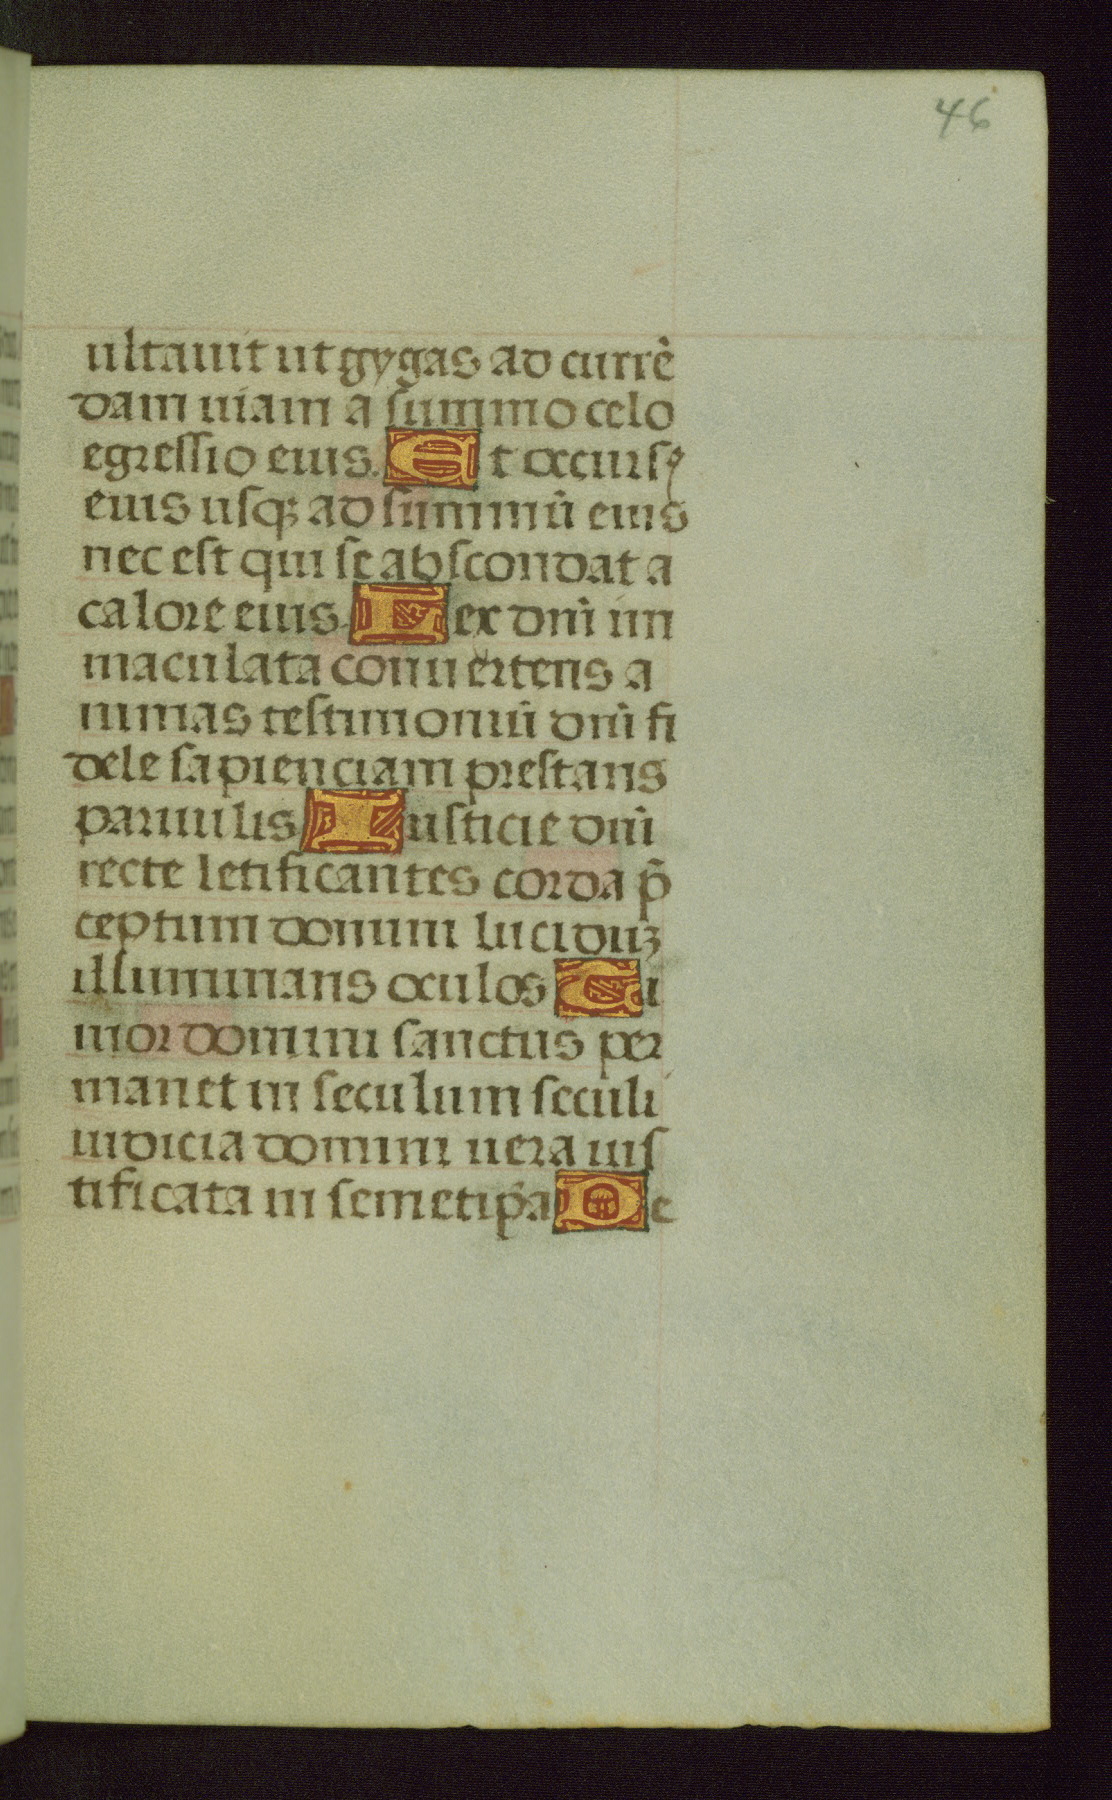 46
ultauit ut gygas ad currē
dam uiam a summo celo
egressio eius. Et occurſꝰ
eius usqꝫ ad summū eius
nec est qui se abscondat a
calore eius. Lex dn̄i im
maculata conuertens a
nimas testimoniū dn̄i fi
dele sapienciam prestans
paruulis Iusticie dn̄i
recte letificantes corda p̄
ceptum domini luciduꝫ
illuminans oculos Ti
mor domini sanctus per
manet in seculum seculi
iudicia domini uera ius
tificata in semetip̄a De